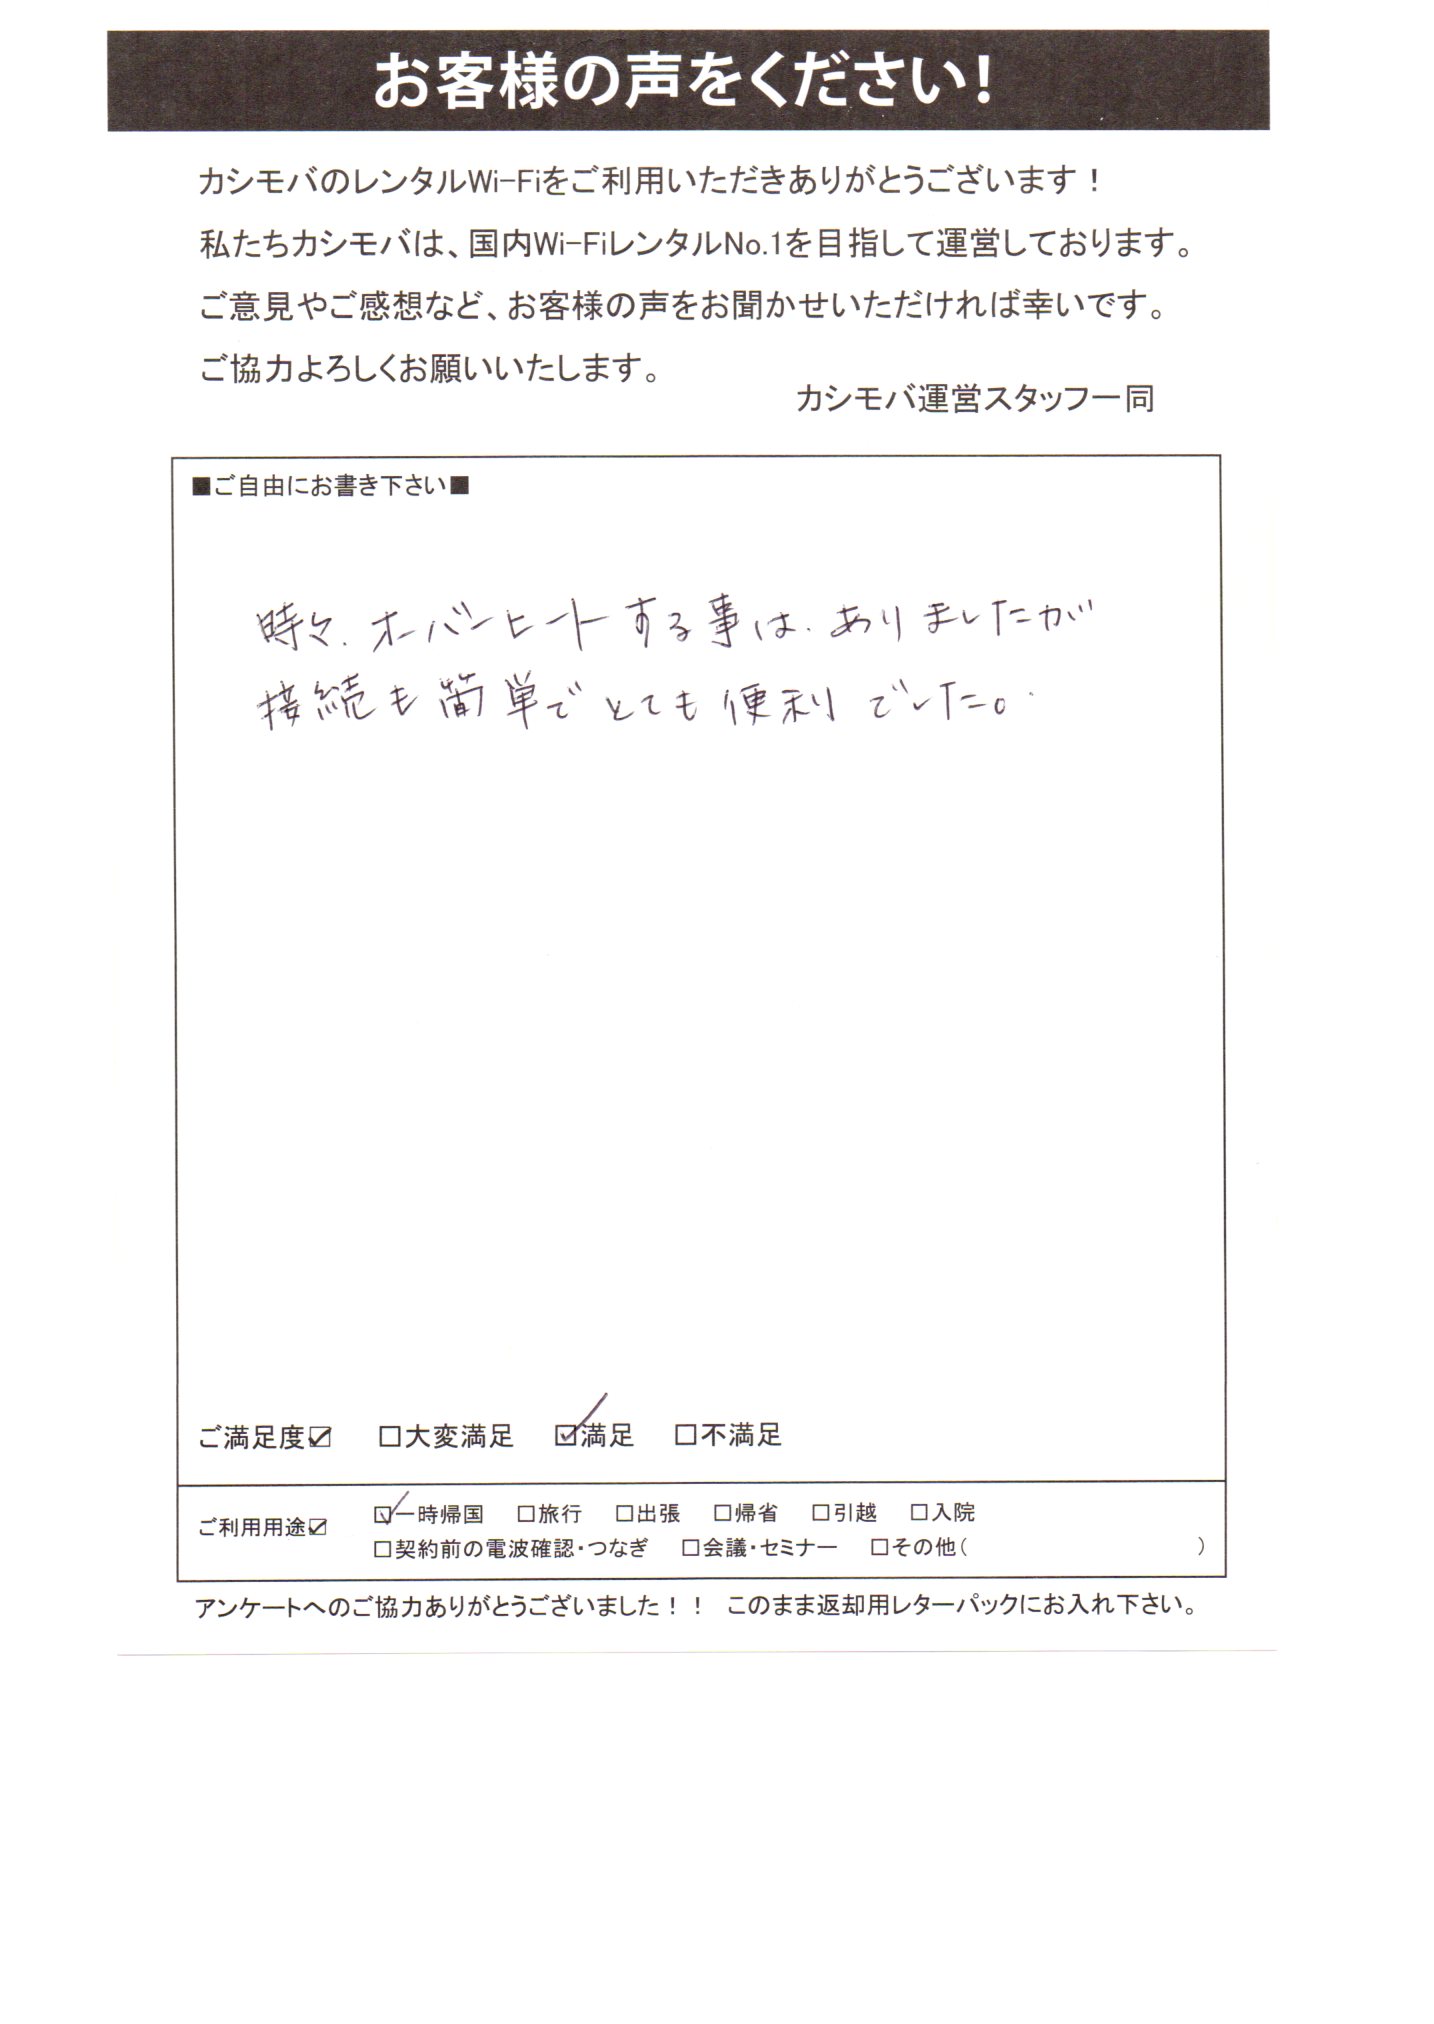 お客様の声をください！
カシモバのレンタルWi-Fiをご利用いただきありがとうございます！
私たちカシモバは、国内Wi-FiレンタルNo.1を目指して運営しております。
ご意見やご感想など、お客様の声をお聞かせいただければ幸いです。
ご協力よろしくお願いいたします。
カシモバ運営スタッフ一同
■ご自由にお書き下さい■
時々、オーバーヒートする事は、ありましたが
接続も簡単でとても便利でした。
ご満足度☑ □大変満足 ☑満足 □不満足
ご利用用途☑ ☑一時帰国 □旅行 □出張 □帰省 □引越 □入院
□契約前の電波確認・つなぎ □会議・セミナー □その他( )
アンケートへのご協力ありがとうございました！！ このまま返却用レターパックにお入れ下さい。